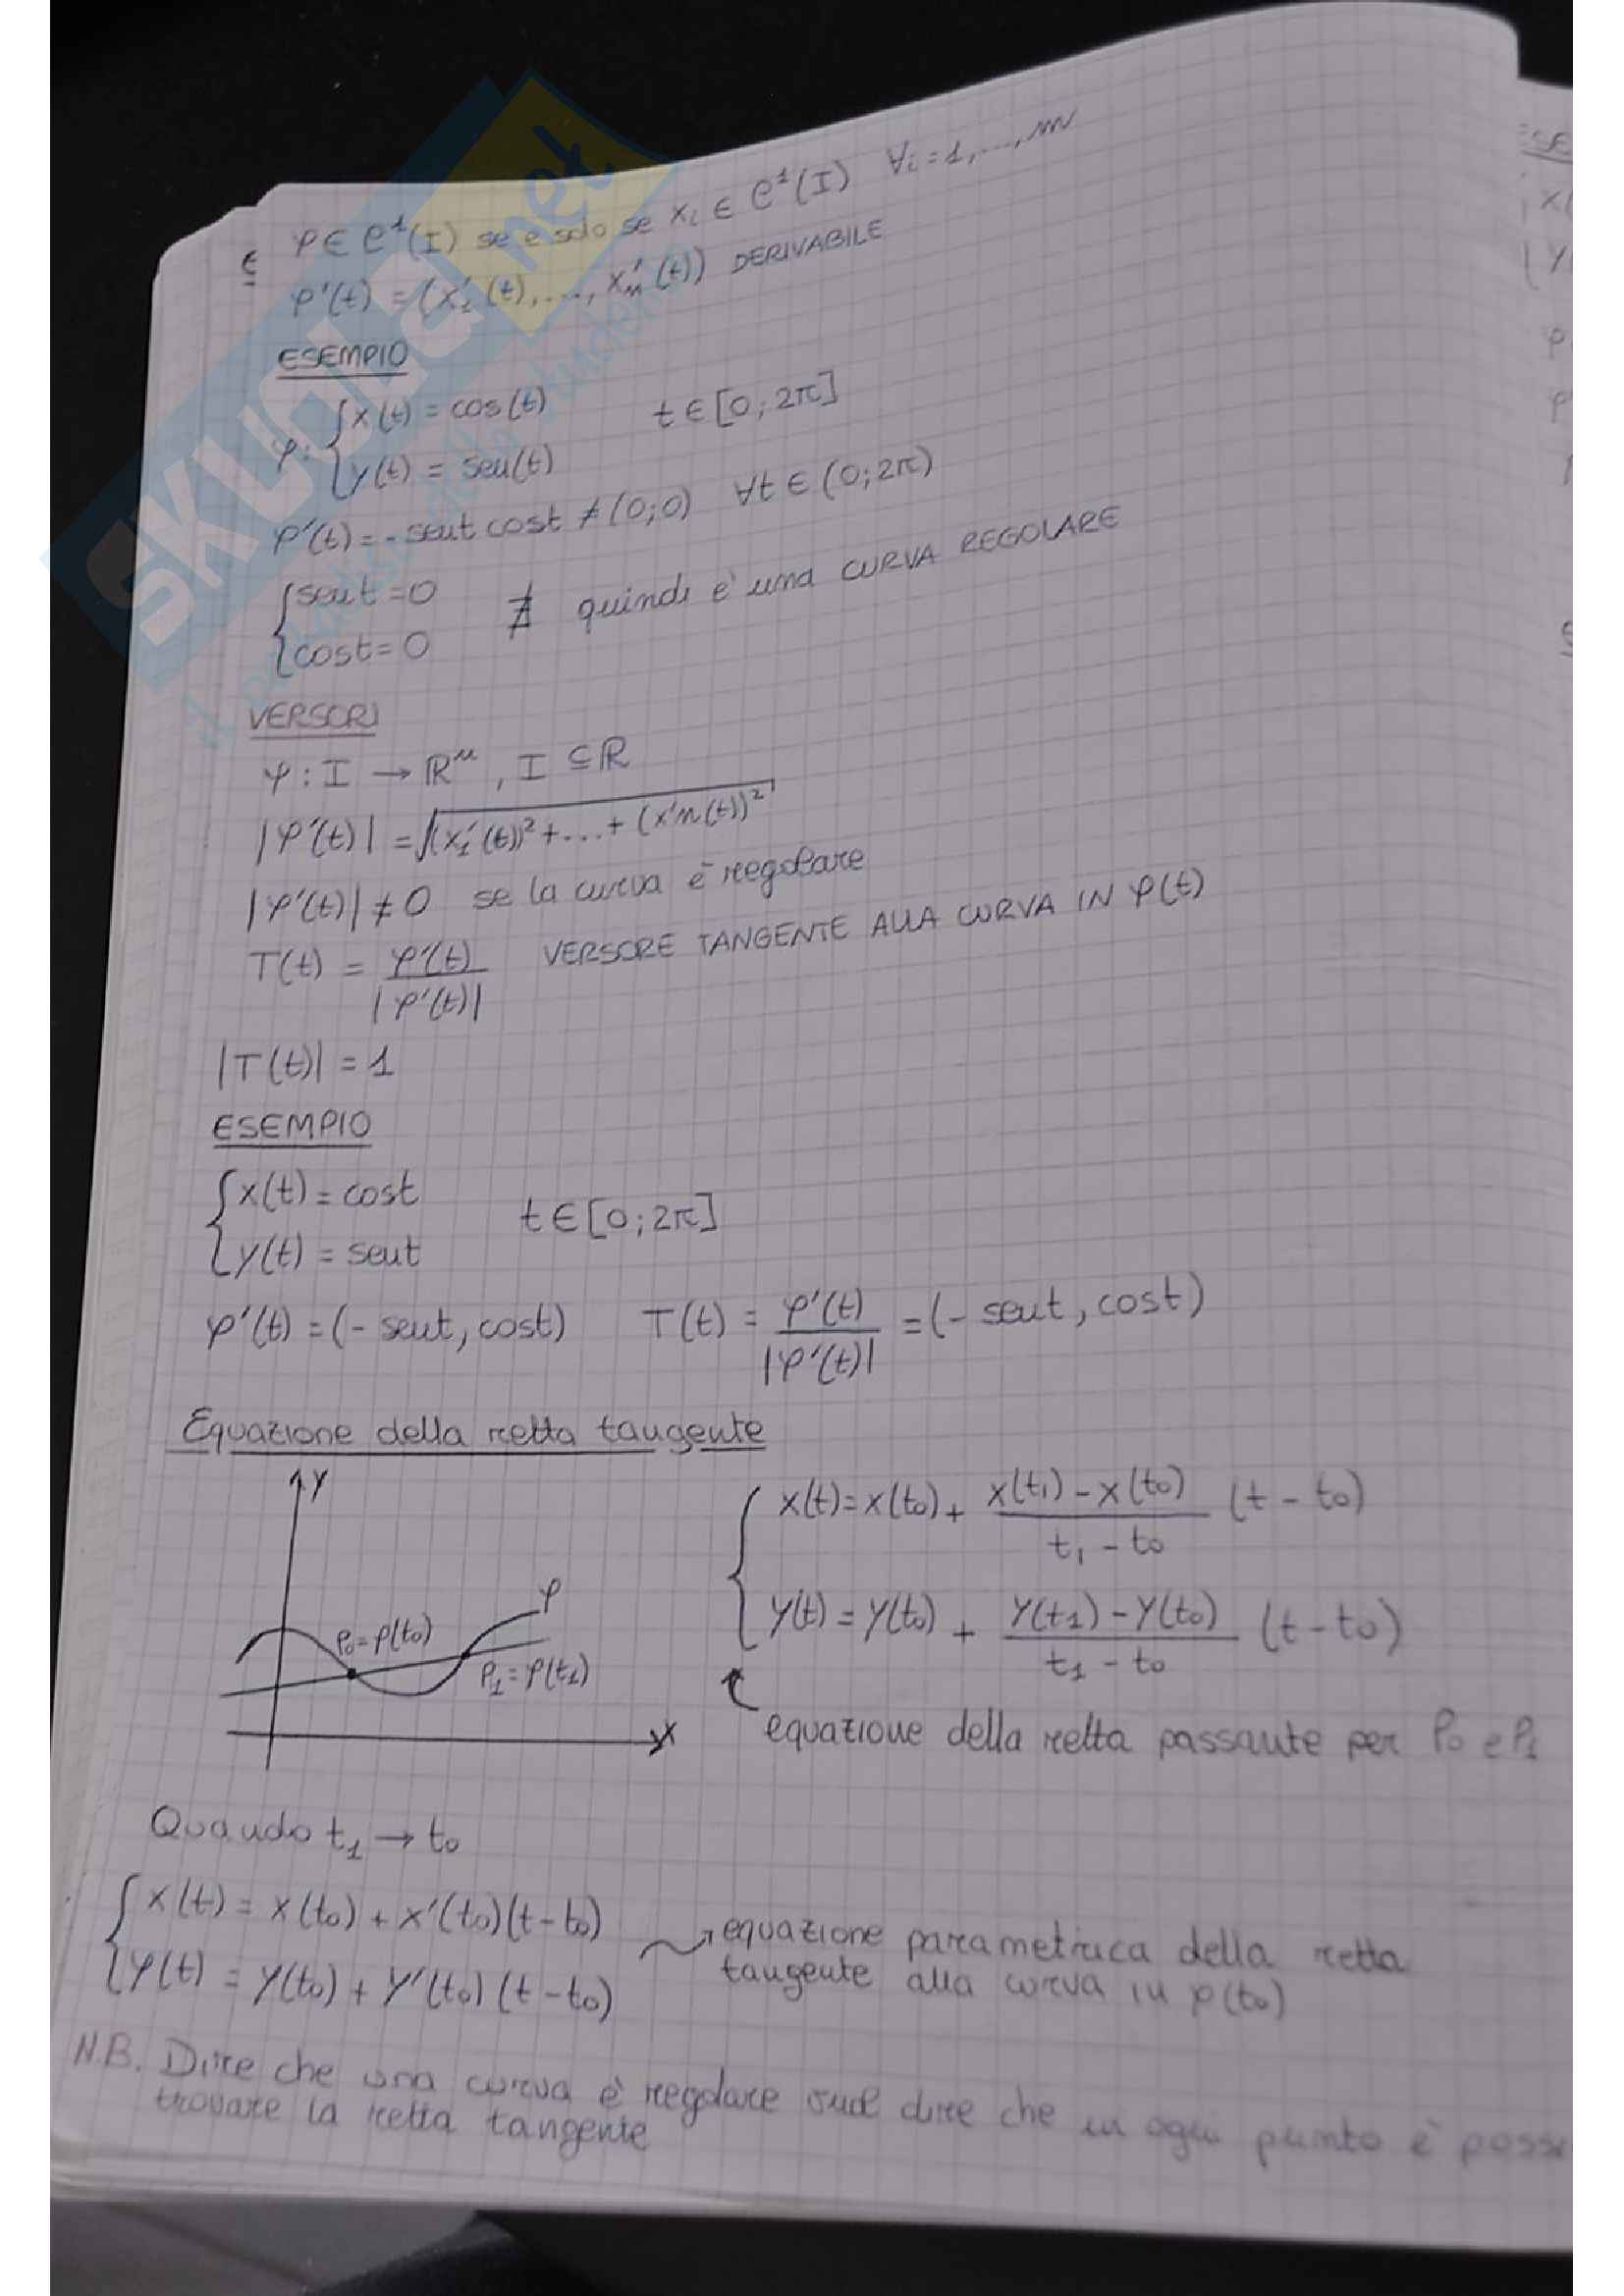 φ ∈ C¹(I) se e solo se xᵢ ∈ C¹(I) ∀i = 1,...,n
e φ'(t) = (x₁'(t),...,xₙ'(t)) DERIVABILE
ESEMPIO
φ: { x(t) = cos(t)
y(t) = sen(t) t ∈ [0; 2π]
φ'(t) = - sent cost ≠ (0;0) ∀t ∈ (0; 2π)
{ sent = 0
cost = 0 ∄ quindi è una CURVA REGOLARE
VERSORI
φ : I → ℝⁿ , I ⊆ ℝ
|φ'(t)| = √(x₁'(t))² + ... + (x'n(t))²
|φ'(t)| ≠ 0 se la curva è regolare
T(t) = φ'(t) / |φ'(t)| VERSORE TANGENTE ALLA CURVA IN φ(t)
|T(t)| = 1
ESEMPIO
{ x(t) = cost
y(t) = sent t ∈ [0; 2π]
φ'(t) = (- sent, cost) T(t) = φ'(t) / |φ'(t)| = (- sent, cost)
Equazione della retta tangente
y
φ
P₀ = φ(t₀)
P₁ = φ(t₁)
x
{ x(t) = x(t₀) + x(t₁) - x(t₀) / t₁ - t₀ (t - t₀)
y(t) = y(t₀) + y(t₁) - y(t₀) / t₁ - t₀ (t - t₀)
equazione della retta passante per P₀ e P₁
Quando t₁ → t₀
{ x(t) = x(t₀) + x'(t₀)(t - t₀)
y(t) = y(t₀) + y'(t₀)(t - t₀)
equazione parametrica della retta
tangente alla curva in φ(t₀)
N.B. Dire che una curva è regolare vuol dire che in ogni punto è possi
trovare la retta tangente
SKUOLA.net